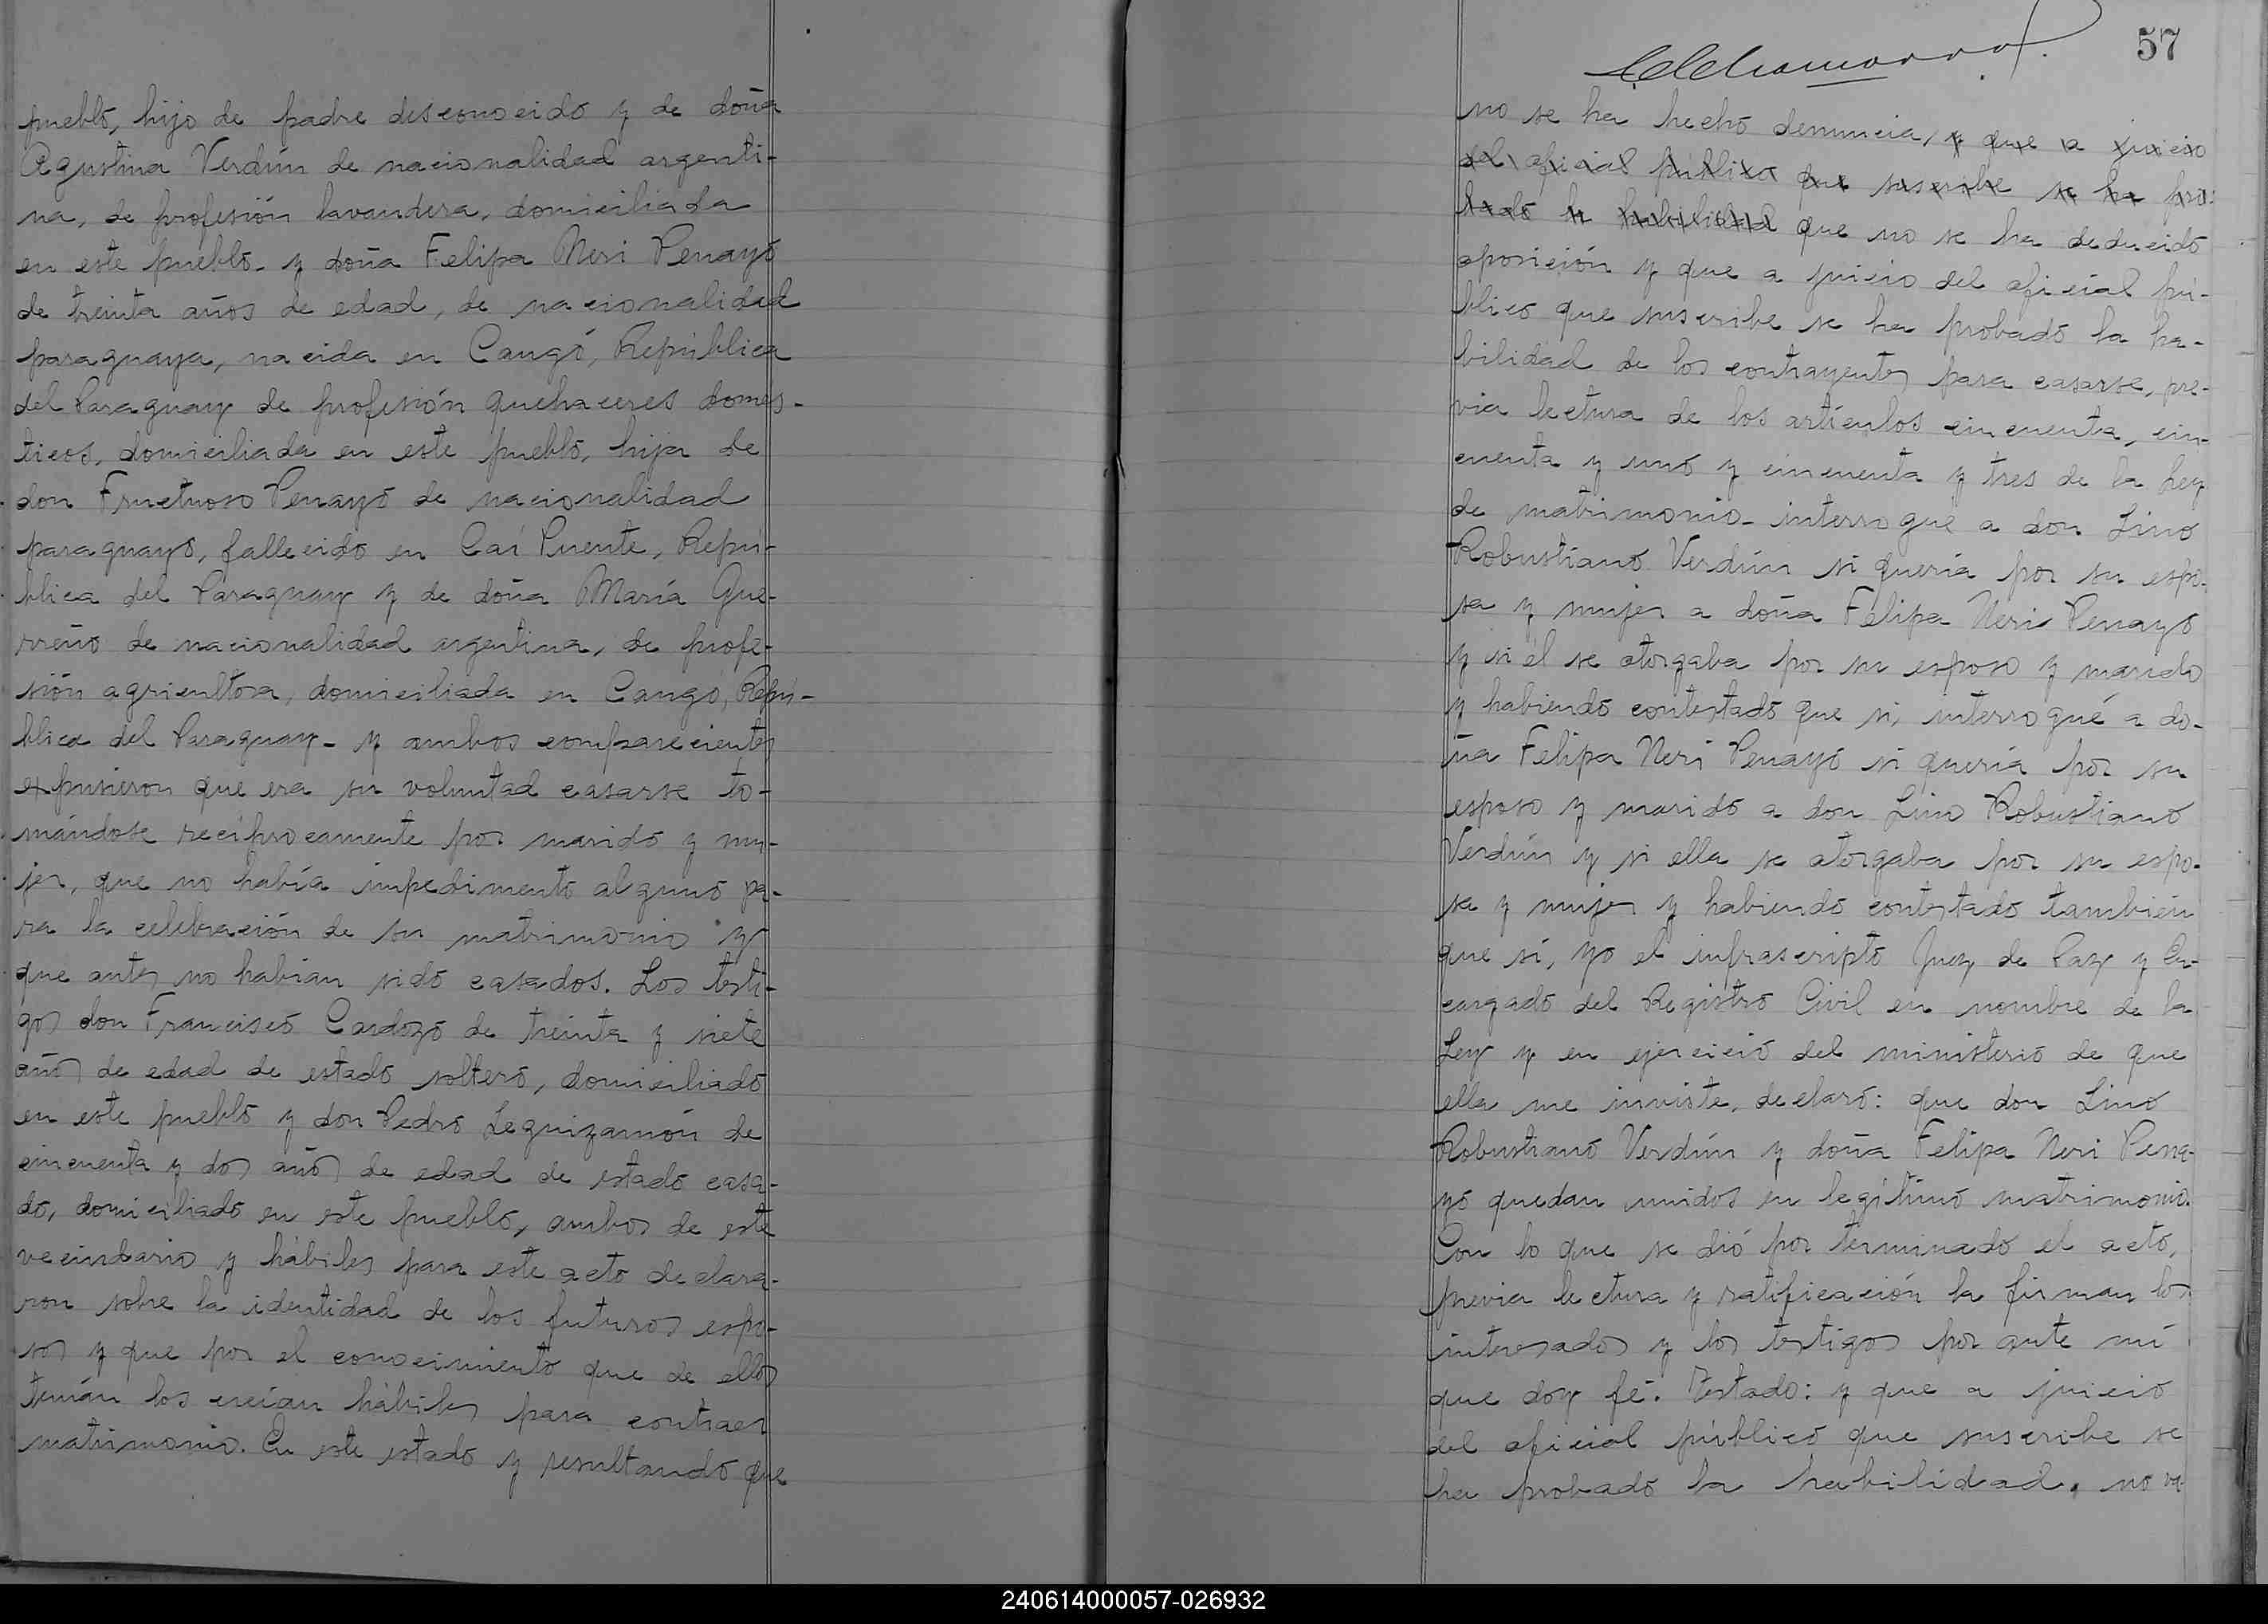 pueblo, hijo de padre desconocido y de doña
Agustina Verdún de nacionalidad argenti-
na, de profesión lavandera, domiciliada
en este pueblo- y doña Felipa Neri Penayo
de treinta años de edad, de nacionalidad
paraguaya, nacida en Cangó, República
del Paraguay de profesión quehaceres domés-
ticos, domiciliada en este pueblo, hija de
don Fructuoso Penayo de nacionalidad
paraguayo, fallecido en Caí Puente, Repú-
blica del Paraguay y de doña María Gue-
rreño de nacionalidad argentina, de profe-
sión agricultora, domiciliada en Cangó, Repú-
blica del Paraguay- y ambos comparecientes
expusieron que era su voluntad casarse to-
mándose recíprocamente por marido y mu-
jer, que no había impedimento alguno pa-
ra la celebración de su matrimonio y
que antes no habían sido casados. Los testi-
gos don Francisco Cardozo de treinta y siete
años de edad de estado soltero, domiciliado
en este pueblo y don Pedro Leguizamón de
cincuenta y dos años de edad de estado casa-
do, domiciliado en este pueblo, ambos de este
vecindario y hábiles para este acto declara-
ron sobre la identidad de los futuros espo-
sos y que por el conocimiento que de ellos
tenían los creían hábiles para contraer
matrimonio. En este estado y resultando que
57
no se ha hecho denuncia, y que a juicio
del oficial público que suscribe se ha pro-
bado la habilidad que no se ha deducido
oposición y que a juicio del oficial pú-
blico que suscribe se ha probado la ha-
bilidad de los contrayentes para casarse, pre-
via lectura de los artículos cincuenta, cin-
cuenta y uno y cincuenta y tres de la Ley
de matrimonio- interrogue a don Lino
Robustiano Verdún si quería por su espo-
sa y mujer a doña Felipa Neri Penayo
y si él se otorgaba por su esposo y marido
y habiendo contestado que si, interrogué a do-
ña Felipa Neri Penayo si quería por su
esposo y marido a don Lino Robustiano
Verdún y si ella se otorgaba por su espo-
sa y mujer y habiendo contestado también
que sí, yo el infrascripto Juez de Paz y En-
cargado del Registro Civil en nombre de la
Ley y en ejercicio del ministerio de que
ella me inviste, declaro: que don Lino
Robustiano Verdún y doña Felipa Neri Pena-
yo quedan unidos en legítimo matrimonio.
Con lo que se dió por terminado el acto,
previa lectura y ratificación la firman los
interesados y los testigos por ante mí
que doy fé. Testado: y que a juicio
del oficial público que suscribe se
ha probado la habilidad, no va-
240614000057-026932